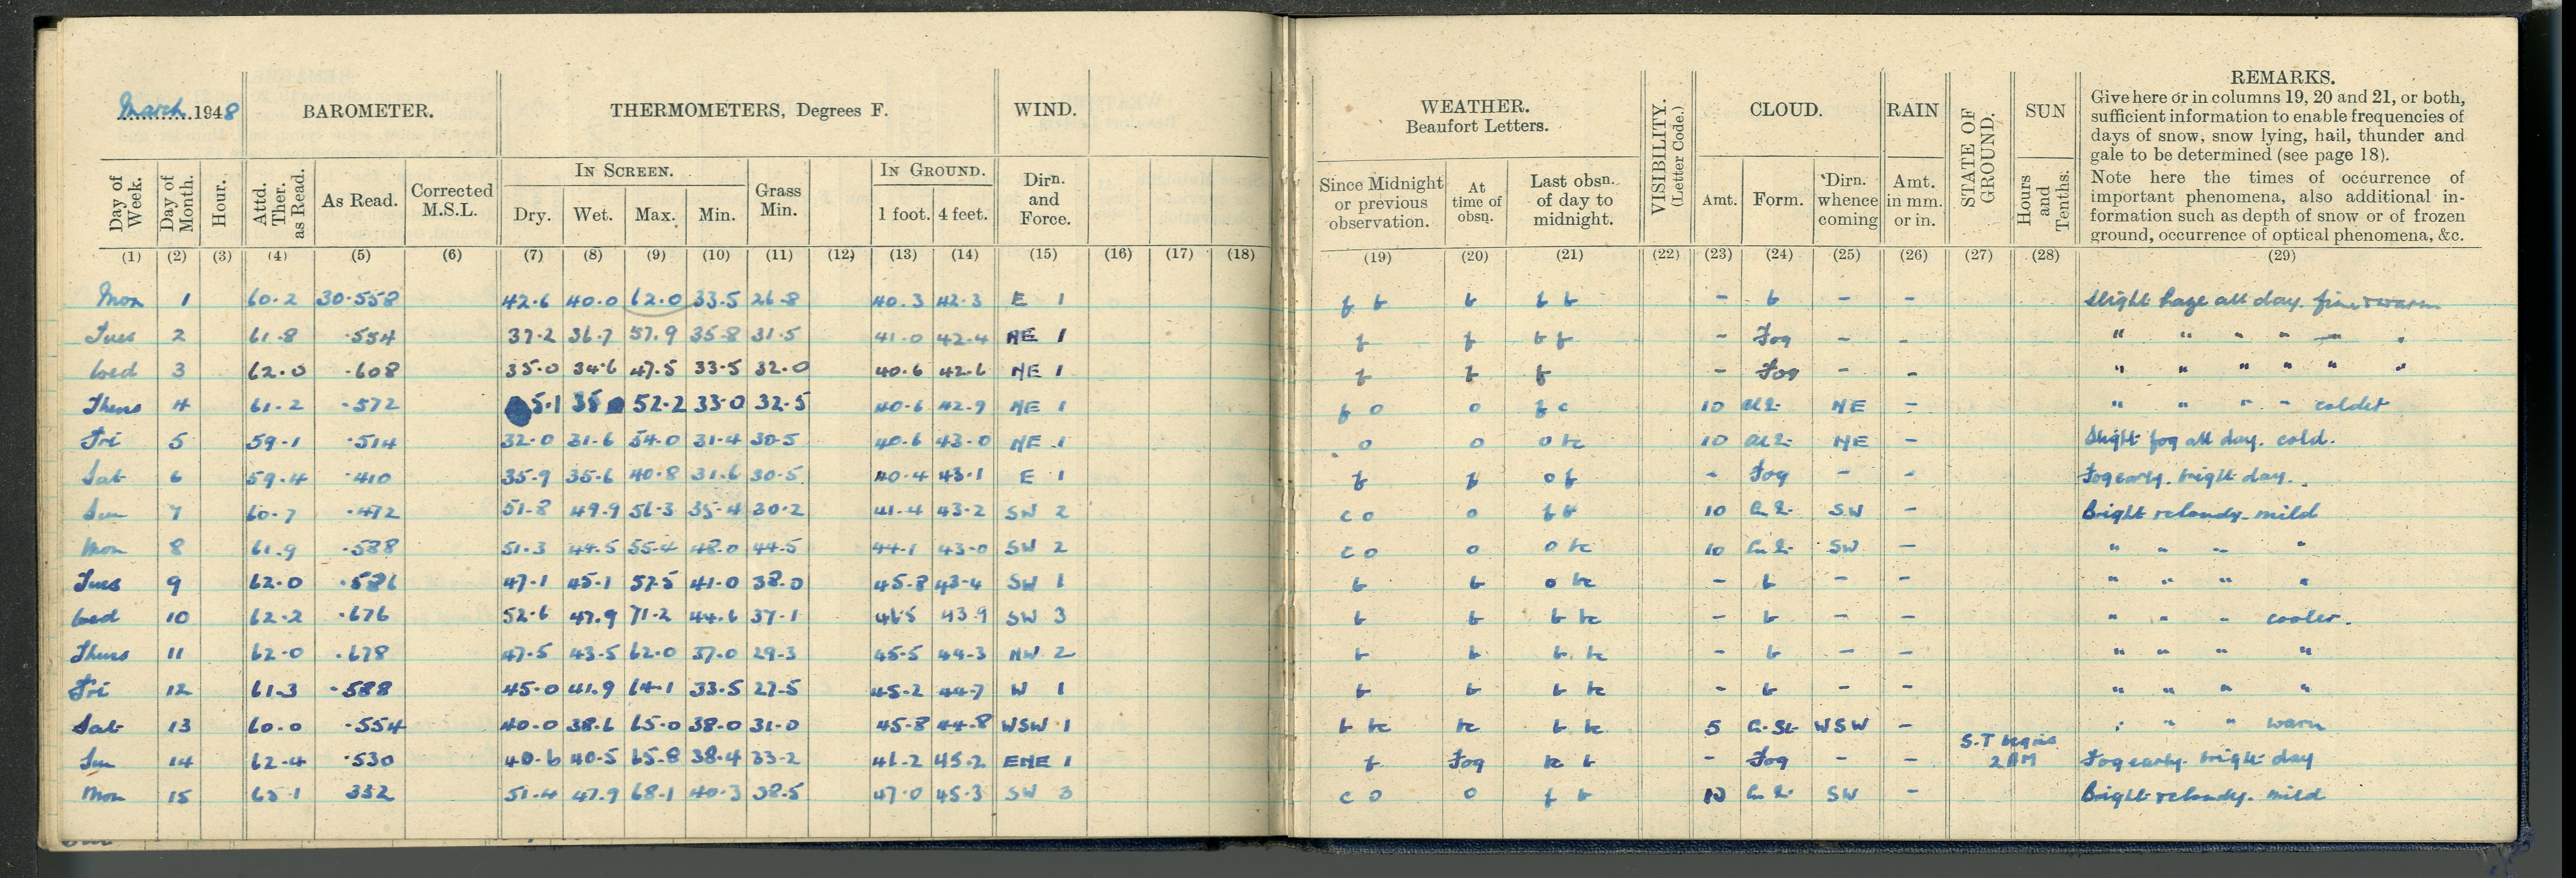 March 1948 BAROMETER. THERMOMETERS, Degrees F. WIND.
IN SCREEN. IN GROUND.
Day of Week. Day of Month. Hour. Attd. Ther. as Read. As Read. Corrected M.S.L. Dry. Wet. Max. Min. Grass Min. 1 foot. 4 feet. Dirn. and Force.
(1) (2) (3) (4) (5) (6) (7) (8) (9) (10) (11) (12) (13) (14) (15) (16) (17) (18)
Mon 1 60.2 30.558 42.6 40.0 62.0 33.5 26.8 40.3 42.3 E 1
Tues 2 61.8 .554 37.2 36.7 57.9 35.8 31.5 41.0 42.4 NE 1
Wed 3 62.0 .608 35.0 34.6 47.5 33.5 32.0 40.6 42.6 NE 1
Thurs 4 61.2 .572 5.1 35 52.2 33.0 32.5 40.6 42.9 NE 1
Fri 5 59.1 .514 32.0 31.6 54.0 31.4 30.5 40.6 43.0 NE 1
Sat 6 59.4 .410 35.9 35.6 40.8 31.6 30.5 40.4 43.1 E 1
Sun 7 60.7 .472 51.8 49.9 56.3 35.4 30.2 41.4 43.2 SW 2
Mon 8 61.9 .588 51.3 49.5 55.4 48.0 44.5 44.1 43.0 SW 2
Tues 9 62.0 .586 47.1 45.1 57.5 41.0 38.0 45.8 43.4 SW 1
Wed 10 62.2 .676 52.6 47.9 71.2 44.6 37.1 46.5 43.9 SW 3
Thurs 11 62.0 .678 47.5 43.5 62.0 37.0 29.3 45.5 44.3 NW 2
Fri 12 61.3 .588 45.0 41.9 64.1 33.5 27.5 45.2 44.7 W 1
Sat 13 60.0 .554 40.0 38.6 65.0 38.0 31.0 45.8 44.8 WSW 1
Sun 14 62.4 .530 40.6 40.5 65.8 38.4 33.2 46.2 45.2 ENE 1
Mon 15 65.1 332 51.4 47.9 68.1 40.3 38.5 47.0 45.3 SW 3
WEATHER. Beaufort Letters. VISIBILITY. (Letter Code.) CLOUD. RAIN STATE OF GROUND. SUN REMARKS.
Give here or in columns 19, 20 and 21, or both,
sufficient information to enable frequencies of
days of snow, snow lying, hail, thunder and
gale to be determined (see page 18).
Note here the times of occurrence of
important phenomena, also additional in-
formation such as depth of snow or of frozen
ground, occurrence of optical phenomena, &c.
Since Midnight or previous observation. At time of obsn. Last obsn. of day to midnight. Amt. Form. Dirn. whence coming Amt. in mm. or in. Hours and Tenths.
(19) (20) (21) (22) (23) (24) (25) (26) (27) (28) (29)
f b b f b - b - - Slight haze all day. fine & warm
f f b f - Fog - - " " " " "
f f f - Fog - - " " " " " "
f o o f c 10 NE - " " " " colder
o o o bc 10 NE - Slight fog all day. cold.
f f o f - Fog - - Fog early. bright day.
c o o f b 10 SW - Bright & cloudy. mild
c o o o bc 10 SW - " " " "
b b o bc - b - - " " " "
b b b bc - b - - " " " cooler.
b b b bc - b - - " " " "
b b b bc - b - - " " " "
b bc bc b bc 5 WSW - " " " warm
S.T begins 2 AM
f Fog bc b - Fog - - Fog early. bright day
c o o f b 10 SW - Bright & cloudy. mild